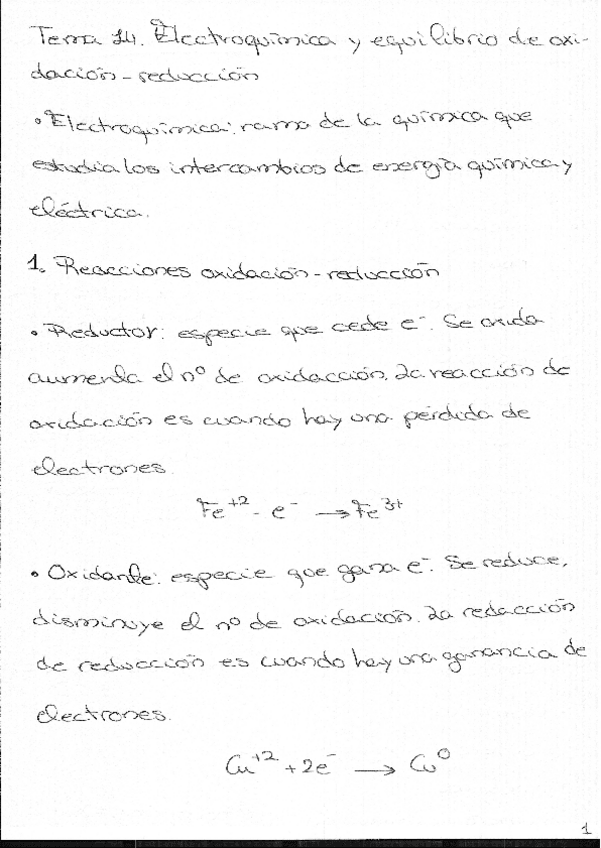 Tema 14. Electroquímica y equilibrio de oxi-
dación-reducción
• Electroquímica: rama de la química que
estudia los intercambios de energía química y
eléctrica.
1. Reacciones oxidación-reducción
• Reductor: especie que cede e⁻. Se oxida
aumenta el nº de oxidacción. La reacción de
oxidación es cuando hay una pérdida de
electrones.
Fe⁺² - e⁻ → Fe³⁺
• Oxidante: especie que gana e⁻. Se reduce,
disminuye el nº de oxidación. La redacción
de reducción es cuando hay una ganancia de
electrones.
Cu⁺² + 2e⁻ → Cu⁰
1